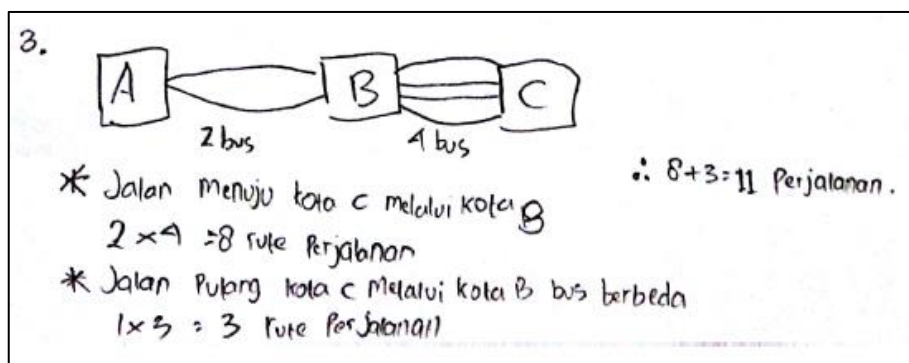 3.
A B C
2 bus 4 bus
* Jalan menuju kota C melalui kota B
2 × 4 = 8 rute Perjalanan
* Jalan Pulang kota C melalui kota B bus berbeda
1 × 3 = 3 rute Perjalanan
∴ 8 + 3 = 11 Perjalanan.